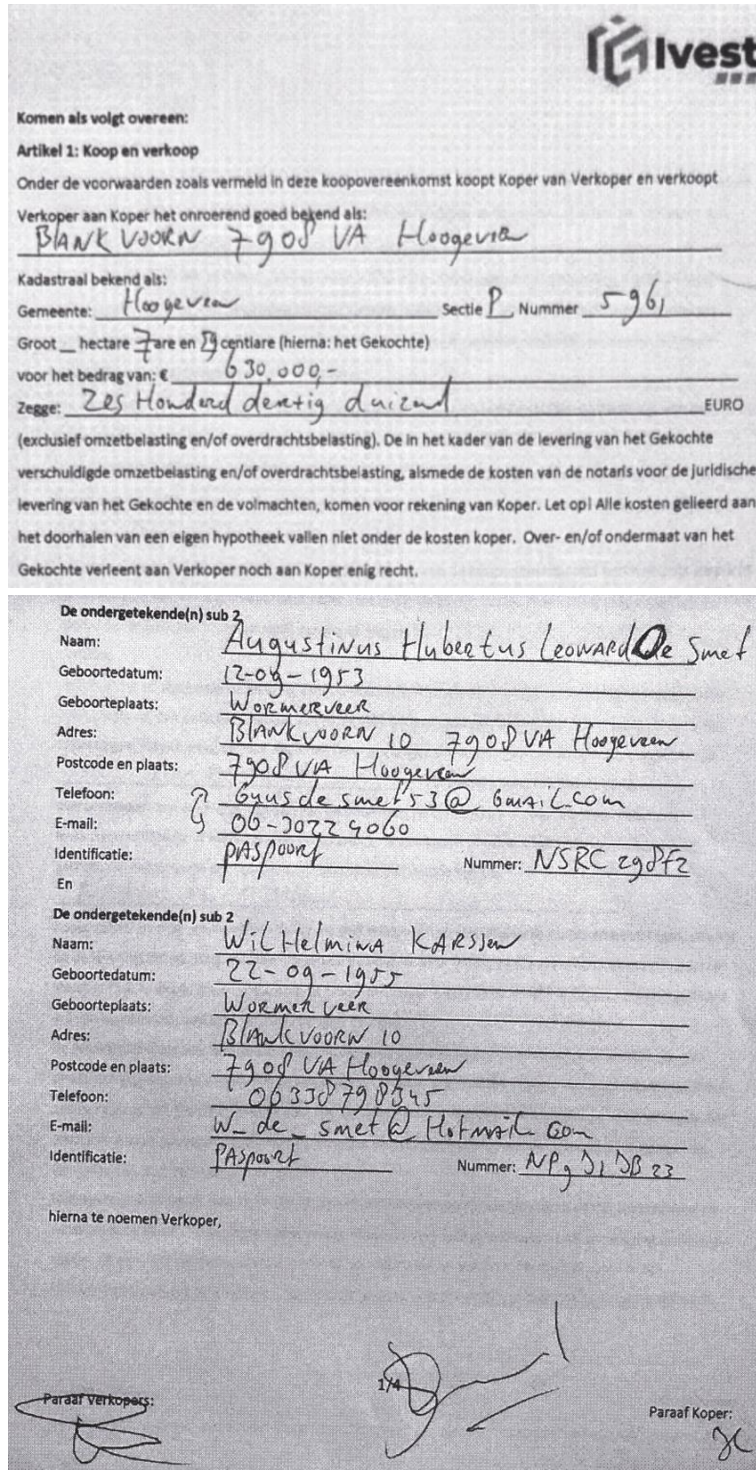 Ivest
Komen als volgt overeen:
Artikel 1: Koop en verkoop
Onder de voorwaarden zoals vermeld in deze koopovereenkomst koopt Koper van Verkoper en verkoopt
Verkoper aan Koper het onroerend goed bekend als:
BLANKVOORN 7908 VA Hoogeveen
Kadastraal bekend als:
Gemeente: Hoogeveen Sectie P Nummer 5961
Groot _ hectare 7 are en centiare (hierna: het Gekochte)
voor het bedrag van: € 630.000,-
Zegge: Zes Honderd dertig duizend EURO
(exclusief omzetbelasting en/of overdrachtsbelasting). De in het kader van de levering van het Gekochte
verschuldigde omzetbelasting en/of overdrachtsbelasting, alsmede de kosten van de notaris voor de juridische
levering van het Gekochte en de volmachten, komen voor rekening van Koper. Let op! Alle kosten gelieerd aan
het doorhalen van een eigen hypotheek vallen niet onder de kosten koper. Over- en/of ondermaat van het
Gekochte verleent aan Verkoper noch aan Koper enig recht.
De ondergetekende(n) sub 2
Naam: Augustinus Hubertus Leonard De Smet
Geboortedatum: 12-09-1953
Geboorteplaats: Wormerveer
Adres: Blankvoorn 10 7908 VA Hoogeveen
Postcode en plaats: 7908 VA Hoogeveen
Telefoon: Guusdesmet53@Gmail.com
E-mail: 06-30224060
Identificatie: PASpoort Nummer:
En
De ondergetekende(n) sub 2
Naam: WilHelmina KARSSen
Geboortedatum: 22-09-1955
Geboorteplaats: Wormerveer
Adres: Blankvoorn 10
Postcode en plaats: 7908 VA Hoogeveen
Telefoon: 06338798345
E-mail: W_de_smet@Hotmail.com
Identificatie: PASpoort Nummer:
hierna te noemen Verkoper,
1/4
Paraaf Verkopers:
Paraaf Koper: